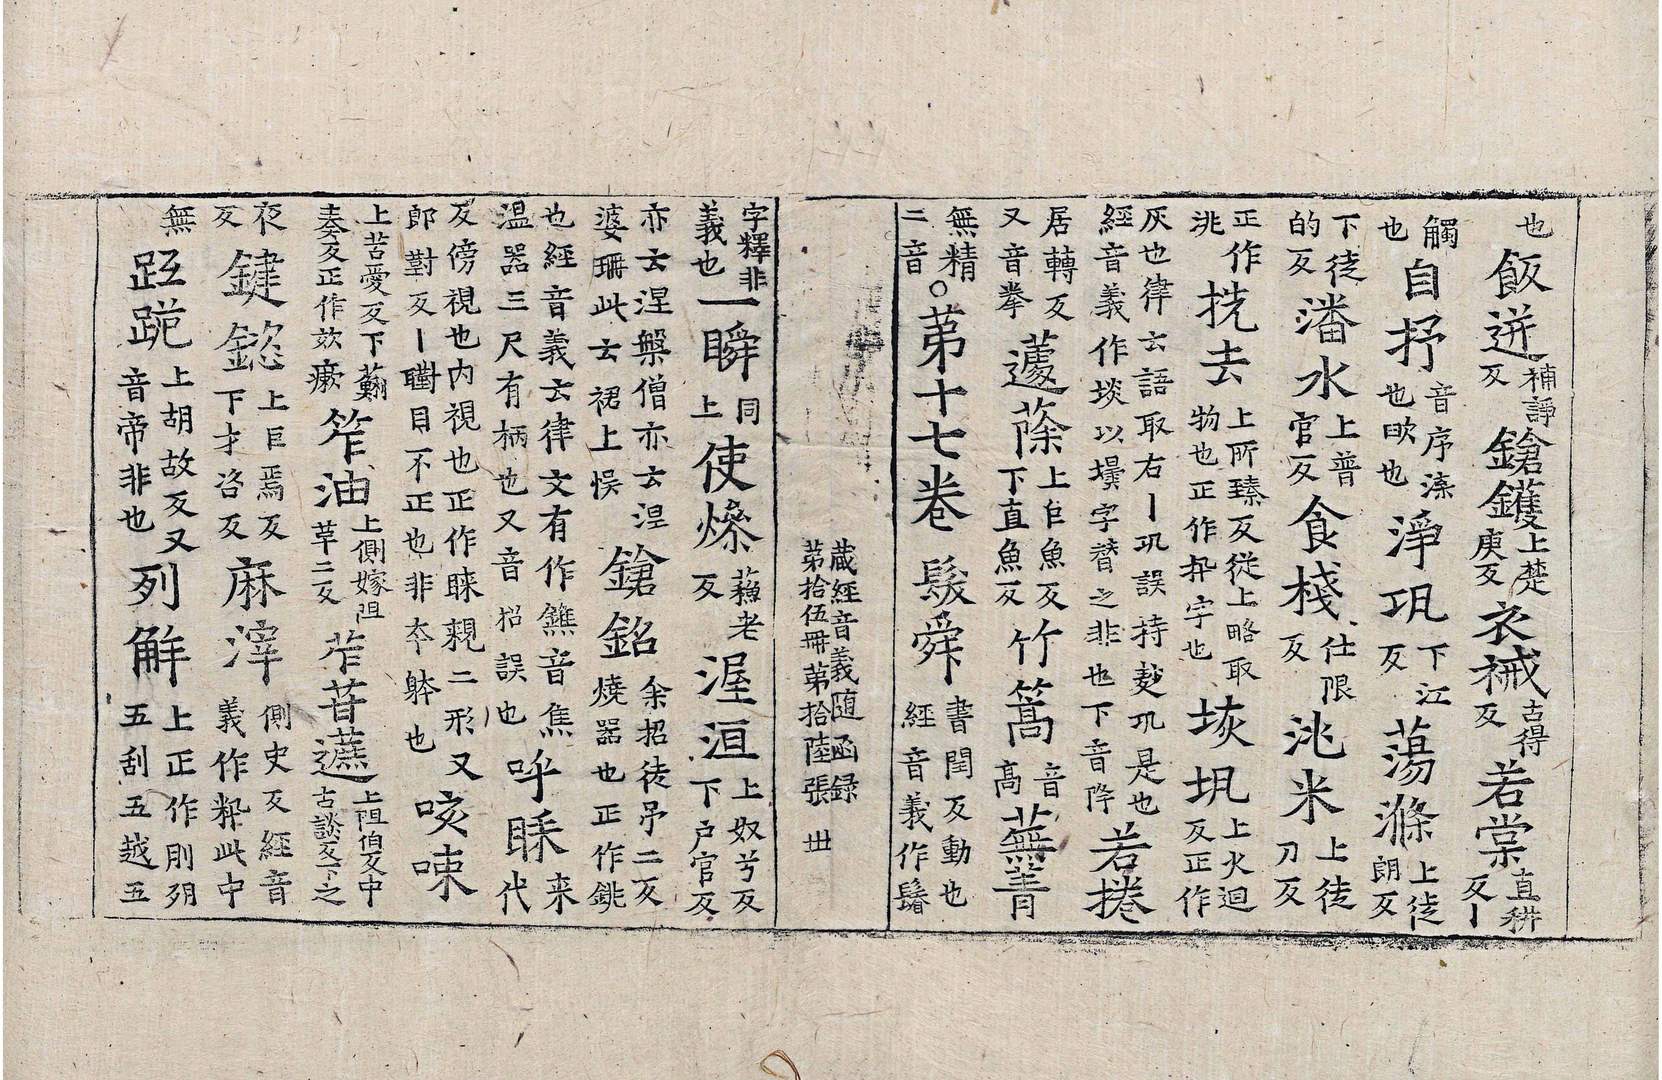 也飯迸補諍反鎗鑊上楚庚反衣裓古得反若棠直耕反丨
觸也自抒音序溙也㽬也淨𢀜下江反蕩滌上徒朗反
下徒的反潘水上普官反食棧仕限反洮米上徒刀反
正作洮挄去上所臻反從上略取物也正作㧐字也垓𡉏上火迴反正作
灰也律云語取右丨𢀜誤持𢀜是也
經音義作埮以㙺字替之非也下音降若捲
居轉反又音拳蘧蒢上巨魚反下直魚反竹篙音高蕪菁
無精二音○苐十七卷鬉舜書閏反動也經音義作鬊
藏經音義随函録
苐拾伍冊苐拾陸張 丗
字釋非義也一瞬同上使燥蘓老反渥洹上奴兮反下户官反
亦云涅槃僧亦云涅婆珊此云裙上悮鎗銘余招徒吊二反燒器也正作銚
也經音義云律文有作鐎音焦温器三尺有柄也又音招誤也呼睬来代
反傍視也内視也正作睞親二形又郎對反丨䀨目不正也非夲躰也咳㖡
上苦愛反下蘇奏反正作欬瘶笮油上側嫁阻草二反苲苷𧀎上祖伯反中古談反下之
夜反鍵鎡上巨焉反下才咨反麻滓側史反經音義作粃此中
無跓跪上胡故反又音帝非也列解上正作刖列五刮五越五